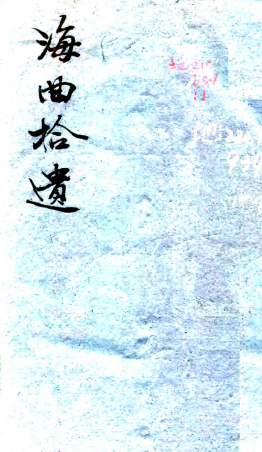 海曲拾遺